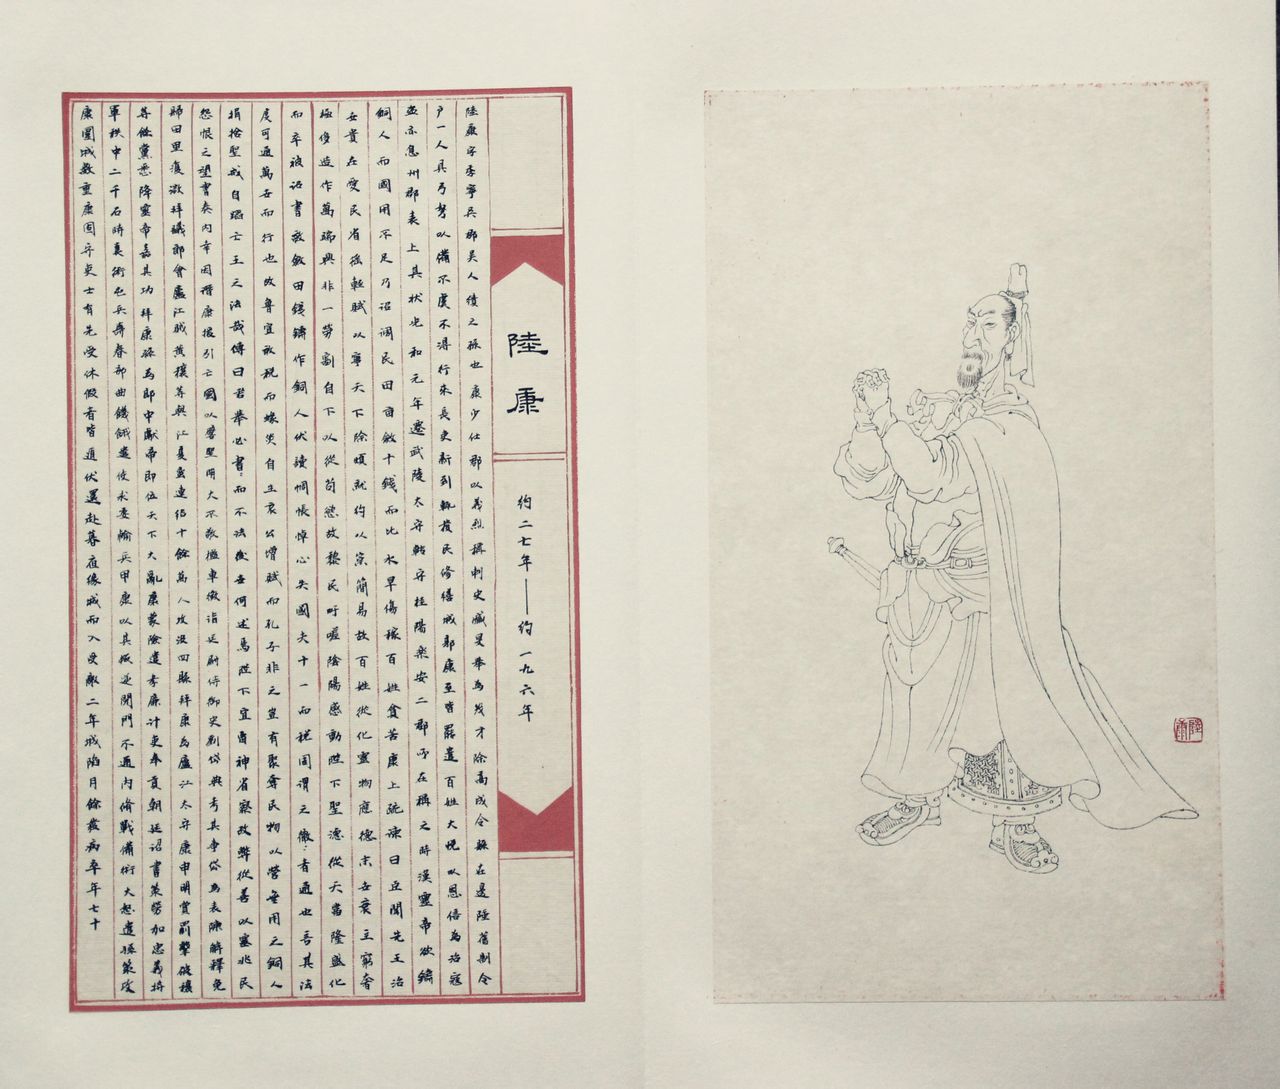 陸康
约二七年——约一九六年
陸康字季寧吳郡吳人續之孫也康少仕郡以義烈稱刺史臧旻舉為茂才除高成令縣在邊陲舊制令
户一人具弓弩以備不虞不得行來長吏新到輒發民修繕城郭康至皆罷遣百姓大悅以恩信為治寇
盜亦息州郡表上其狀光和元年遷武陵太守轉守桂陽樂安二郡所在稱之時漢靈帝欲鑄
銅人而國用不足乃詔調民田亩斂十錢而比水旱傷稼百姓貧苦康上疏諫曰臣聞先王治
世貴在愛民省徭輕賦以寧天下除煩就约以崇簡易故百姓從化靈物應德末世衰主窮奢
極侈造作萬端興非一勞割自下以從苟慾故黎民吁嗟陰陽感動陛下聖德從天當隆盛化
而卒被詔書畝斂田錢鑄作銅人伏讀惆悵悼心失國夫十一而税周謂之徹:者通也言其法
度可通萬世而行也故魯宣畝税而蝝災自生哀公增賦而孔子非之豈有聚奪民物以營無用之銅人
捐捨聖戒自蹈亡王之法哉傳曰君舉必書:而不法後世何述焉陛下宜留神省察改弊從善以塞兆民
怨恨之望書奏内幸因譖康援引亡國以譬聖明大不敬檻車徵詣廷尉侍御史劉岱典考其事岱為表陳解釋免
歸田里復徵拜議郎會廬江賊黃穰等與江夏蠻連結十餘萬人攻没四縣拜康為廬江太守康申明賞罰擊破穰
等餘黨悉降靈帝嘉其功拜康孫為郎中獻帝即位天下大亂康蒙險遣孝廉計吏奉貢朝廷詔書策勞加忠義將
軍秩中二千石時袁術屯兵壽春部曲饑餓遣使求委輸兵甲康以其叛逆閉門不通内修戰備術大怒遣孫策攻
康圍城數重康固守吏士有先受休假者皆遁伏還赴暮夜緣城而入受敵二年城陷月餘發病卒年七十
陸康